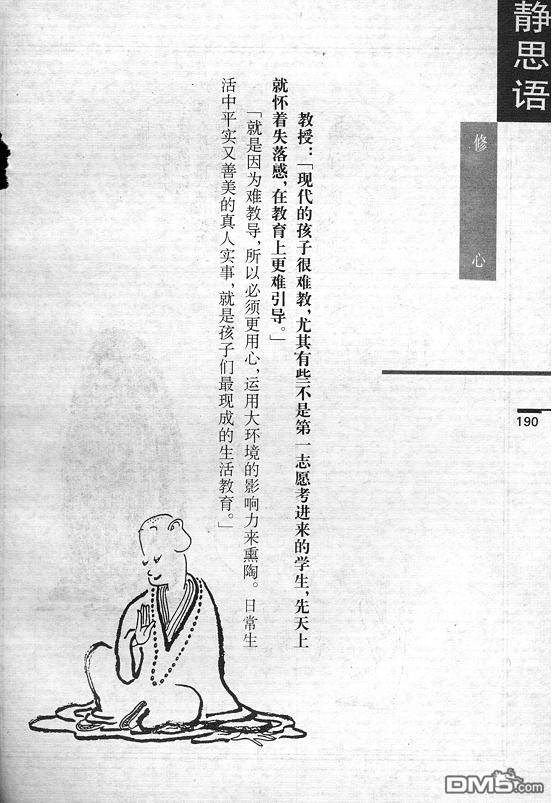 静思语
修心
190
教授：「现代的孩子很难教，尤其有些不是第一志愿考进来的学生，先天上
就怀着失落感，在教育上更难引导。」
「就是因为难教导，所以必须更用心，运用大环境的影响力来熏陶。日常生
活中平实又善美的真人实事，就是孩子们最现成的生活教育。」
DM5.com